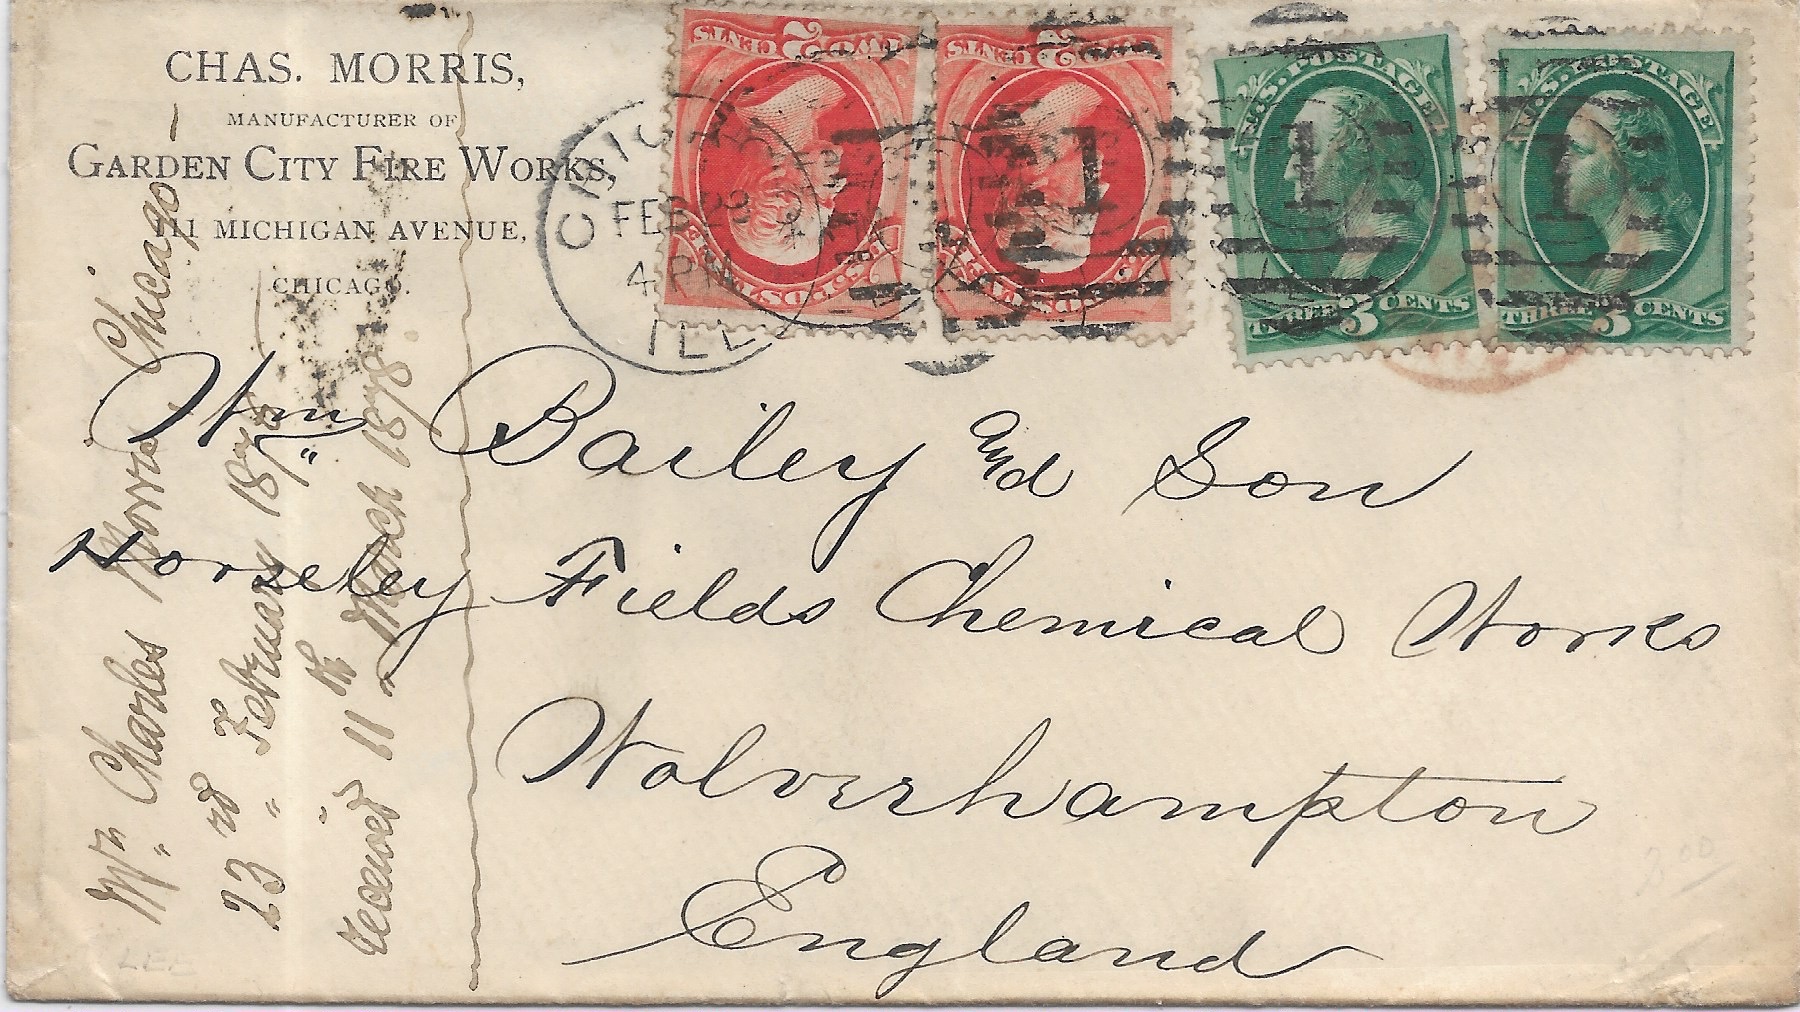 CHAS. MORRIS,
MANUFACTURER OF
GARDEN CITY FIRE WORKS,
111 MICHIGAN AVENUE,
CHICAGO.
TWO 2 CENTS
U.S. POSTAGE
TWO 2 CENTS
U.S. POSTAGE
U.S. POSTAGE
THREE 3 CENTS
U.S. POSTAGE
THREE 3 CENTS
CHICAGO
FEB 23
4 PM
ILL.
1
1
1
Wm Bailey and Son
Horseley Fields Chemical Works
Wolverhampton
England
Mr Charles Morris, Chicago —
23rd February 1878
received 11th March 1878.